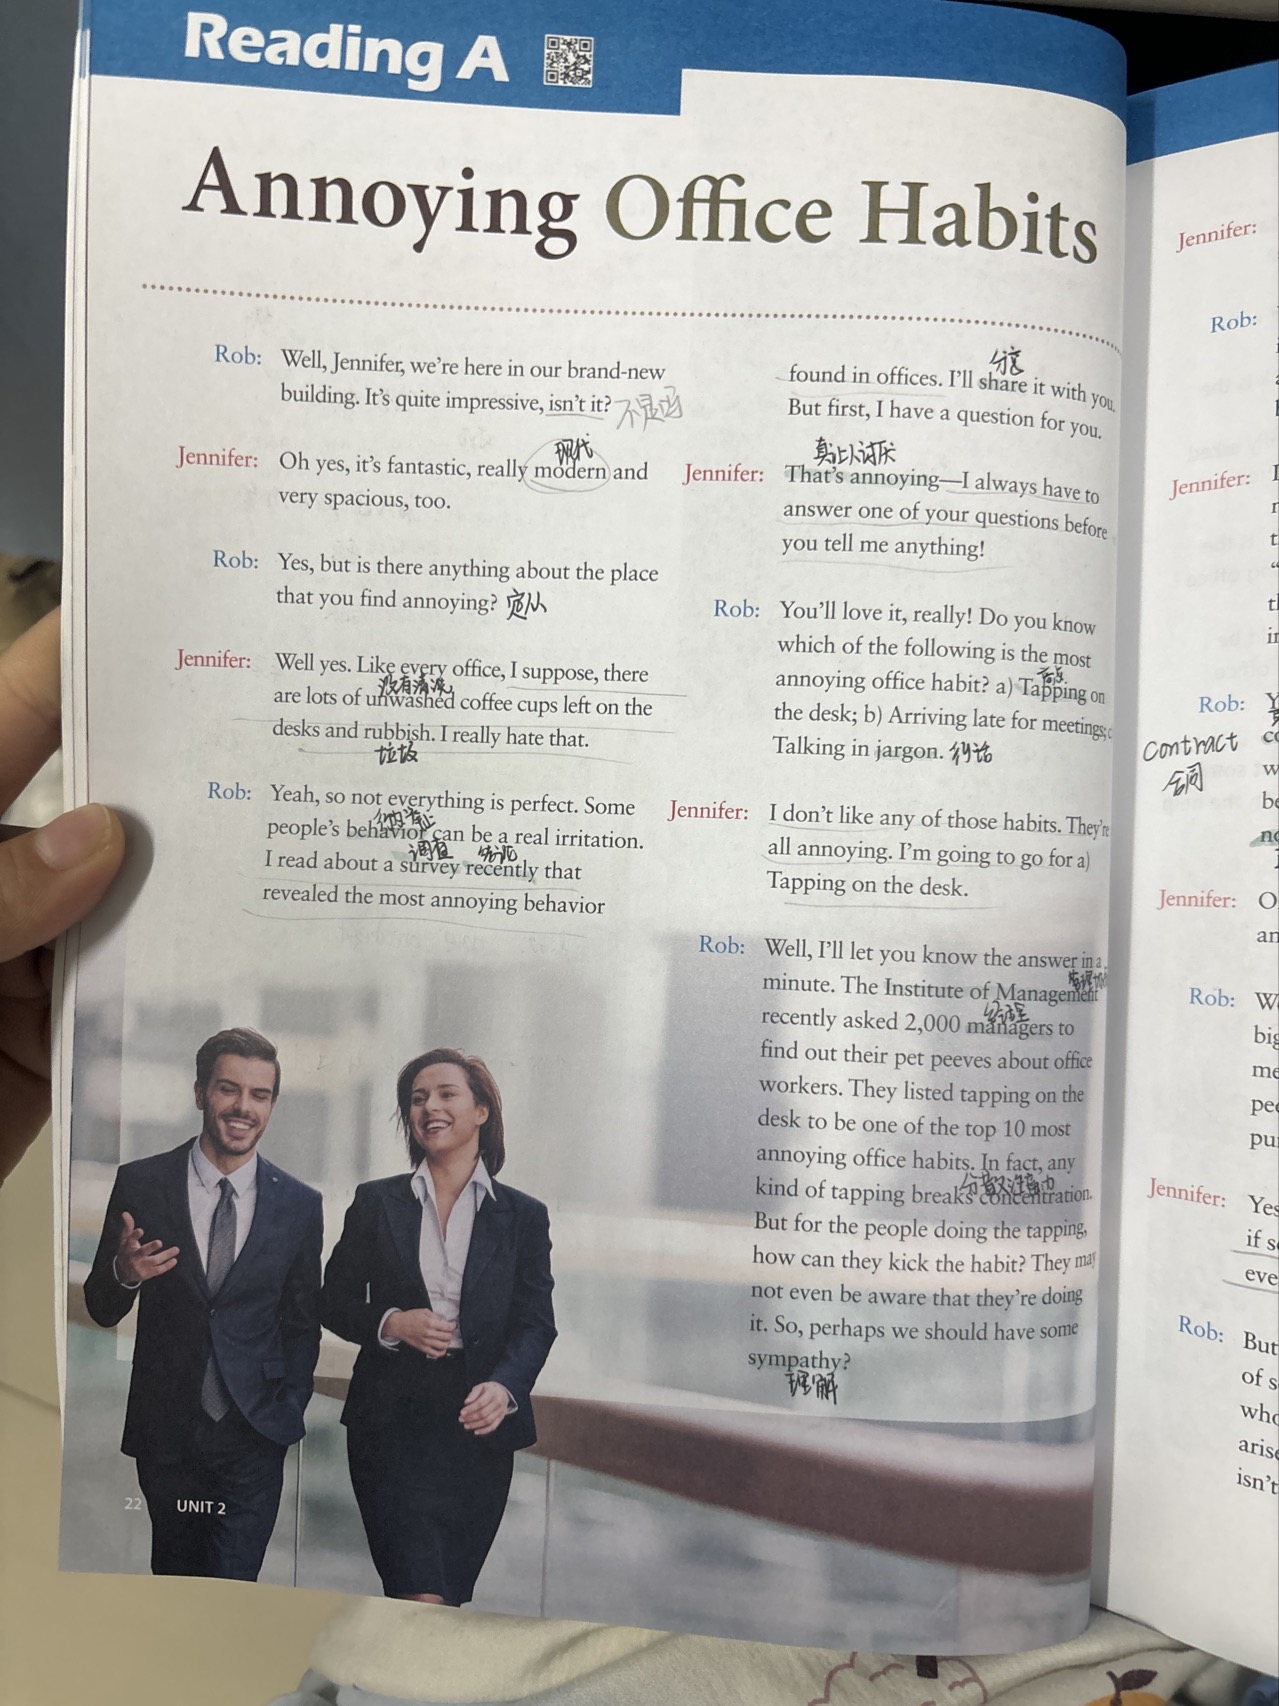 Reading A
Annoying Office Habits
Rob: Well, Jennifer, we're here in our brand-new
building. It's quite impressive, isn't it? 不是吗
Jennifer: Oh yes, it's fantastic, really modern and
现代
very spacious, too.
Rob: Yes, but is there anything about the place
that you find annoying?
Jennifer: Well yes. Like every office, I suppose, there
没有清洗
are lots of unwashed coffee cups left on the
desks and rubbish. I really hate that.
垃圾
Rob: Yeah, so not everything is perfect. Some
people's behavior can be a real irritation.
调查
I read about a survey recently that
revealed the most annoying behavior
分享
found in offices. I'll share it with you.
But first, I have a question for you.
真让人讨厌
Jennifer: That's annoying—I always have to
answer one of your questions before
you tell me anything!
Rob: You'll love it, really! Do you know
which of the following is the most
annoying office habit? a) Tapping on
the desk; b) Arriving late for meetings;
Talking in jargon. 行话
Jennifer: I don't like any of those habits. They're
all annoying. I'm going to go for a)
Tapping on the desk.
Rob: Well, I'll let you know the answer in a
minute. The Institute of Management
经理
recently asked 2,000 managers to
find out their pet peeves about office
workers. They listed tapping on the
desk to be one of the top 10 most
annoying office habits. In fact, any
kind of tapping breaks concentration.
But for the people doing the tapping,
how can they kick the habit? They may
not even be aware that they're doing
it. So, perhaps we should have some
sympathy?
理解
22 UNIT 2
Jennifer:
Rob:
Jennifer:
Rob:
contract
合同
Jennifer:
an
Rob:
big
Jennifer: Yes
if
eve
Rob: But
of
who
isn't